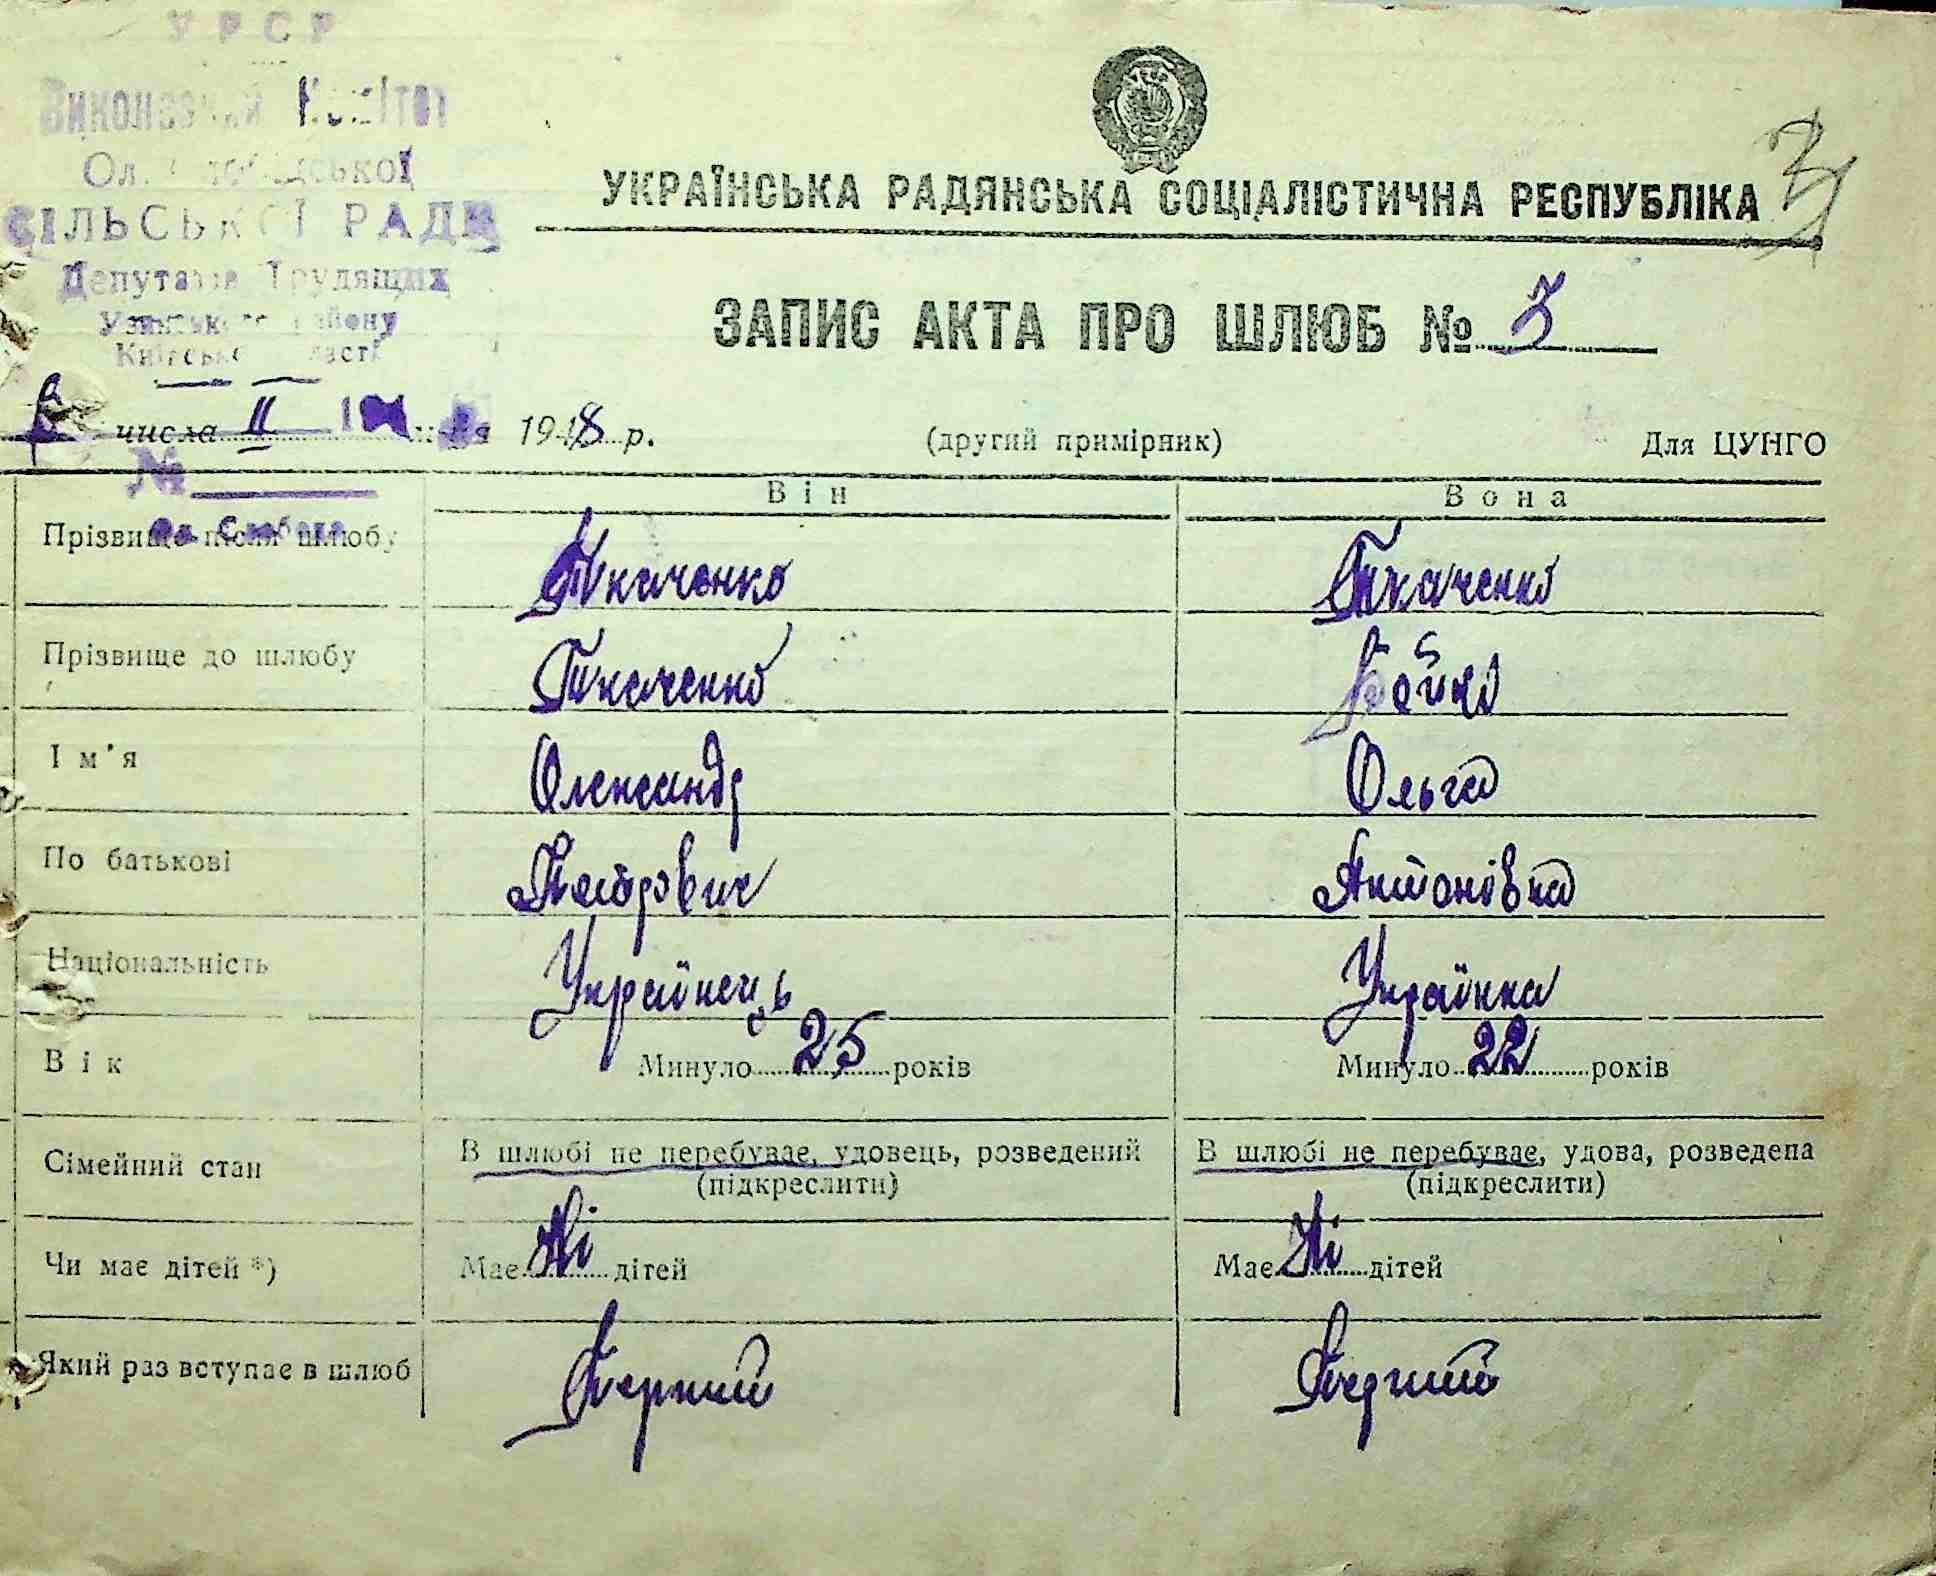 УРСР
Виконавчий Комітет
СІЛЬСЬКОЇ РАДИ
Депутатів Трудящих
Узинського району
Київської області
УКРАЇНСЬКА РАДЯНСЬКА СОЦІАЛІСТИЧНА РЕСПУБЛІКА
ЗАПИС АКТА ПРО ШЛЮБ № 3
числа II 1948 р. (другий примірник) Для ЦУНГО
№
Він Вона
Прізвище після шлюбу Ткаченко Ткаченко
Прізвище до шлюбу Ткаченко Бойко
Ім'я Олександр Ольга
По батькові Петрович Антоновна
Національність Українець Українка
Вік Минуло 25 років Минуло 22 років
Сімейний стан В шлюбі не перебуває, удовець, розведений В шлюбі не перебуває, удова, розведена
(підкреслити) (підкреслити)
Чи має дітей *) Має Ні дітей Має Ні дітей
Який раз вступає в шлюб Перший Перший